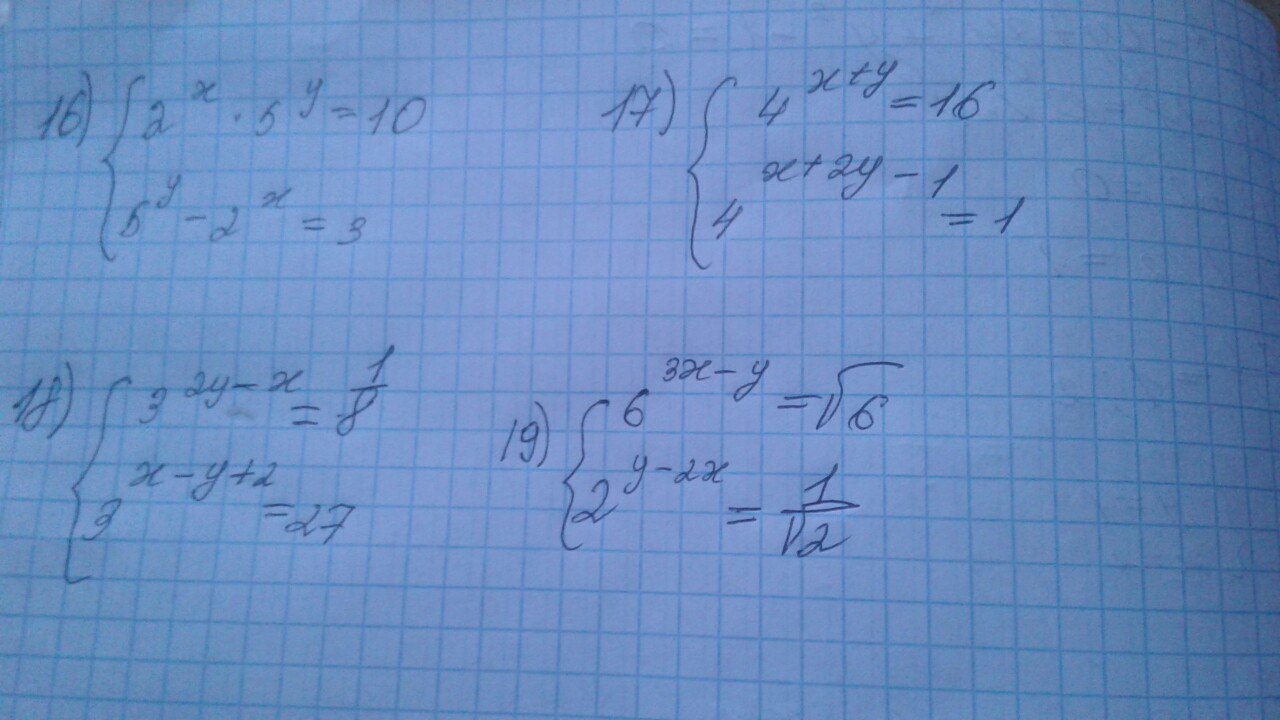 16) { 2^x · 5^y = 10
5^y - 2^x = 3
17) { 4^(x+y) = 16
4^(x+2y-1) = 1
18) { 3^(2y-x) = 1/8
3^(x-y+2) = 27
19) { 6^(3x-y) = √6
2^(y-2x) = 1/√2